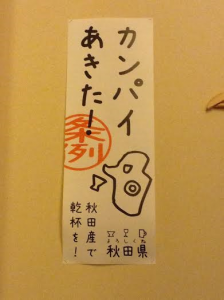 カンパイ
あきた！
条例
秋田産で
乾杯を！
秋田県